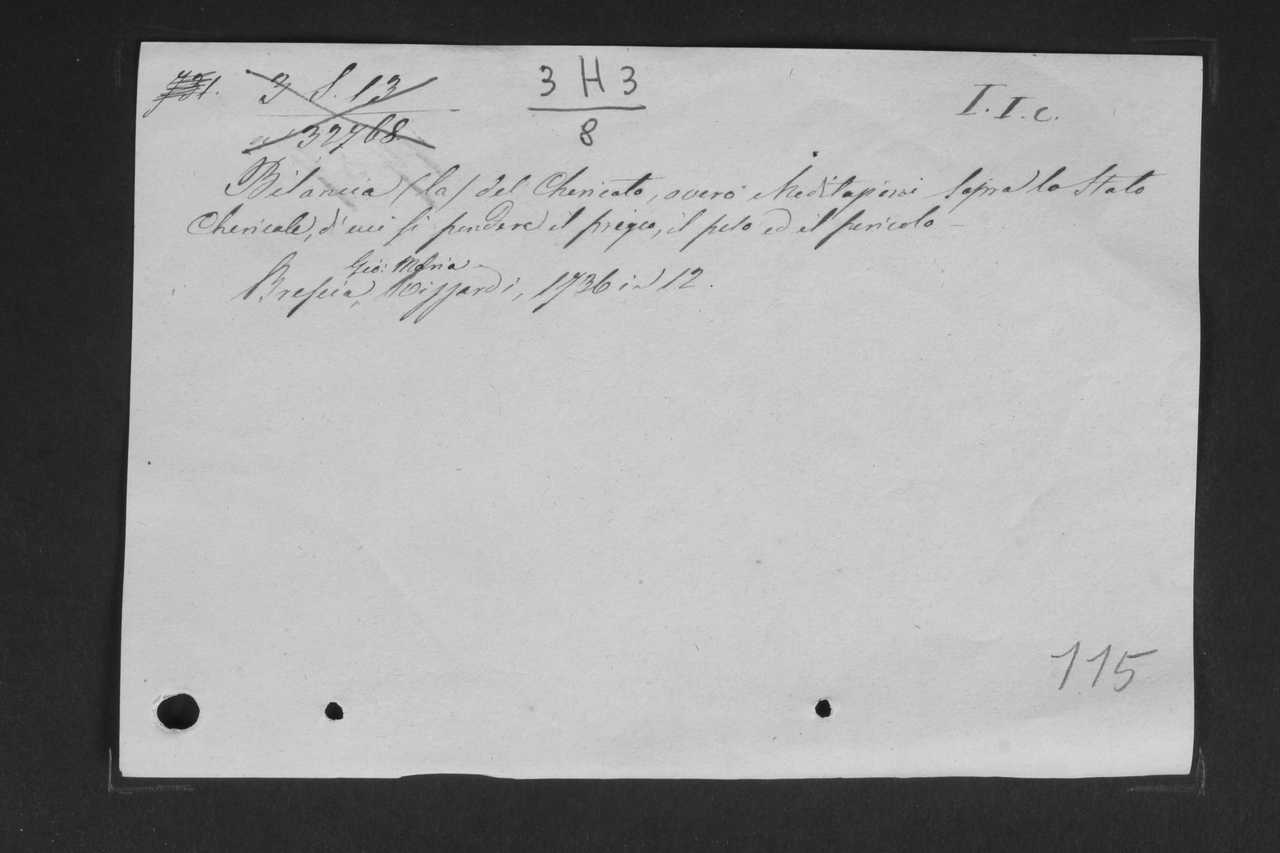 3 S. 13
32768
3 H 3
8
I. I. c.
Bilancia (la) del Chericato, overo Meditazioni sopra lo Stato
Chericale, di cui si pondera il pregio, il peso ed il pericolo
Gio: Maria
Brescia, Rizzardi, 1736 in 12.
115